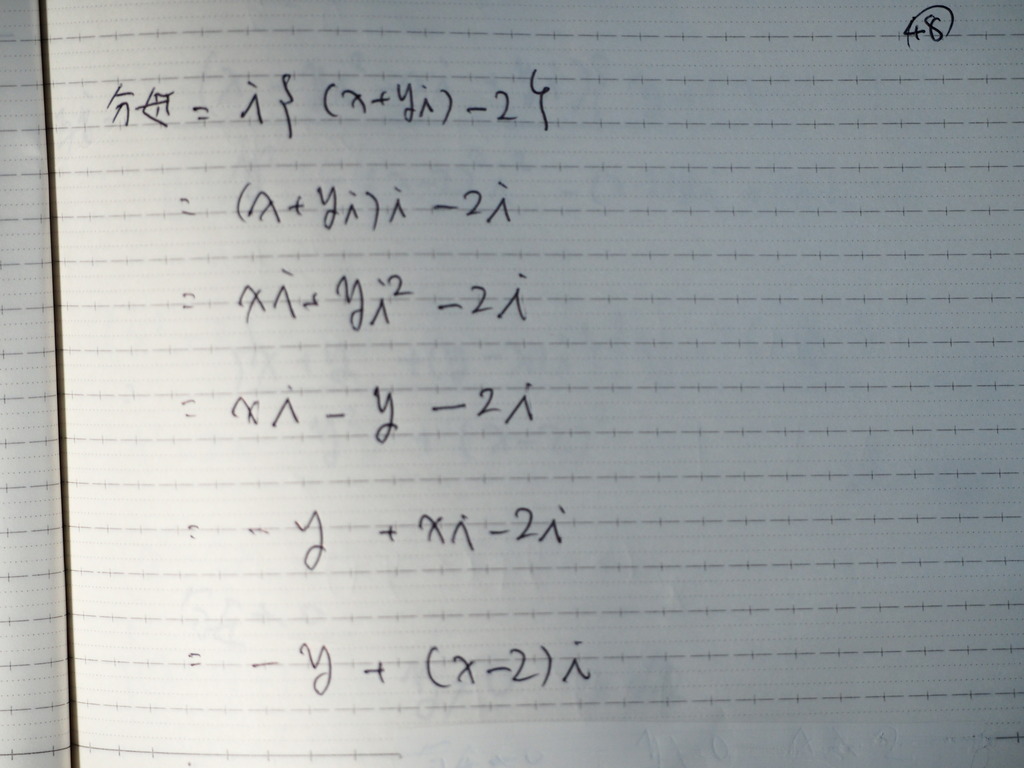 48
分母 = i{(x+yi)-2}
= (x+yi)i - 2i
= xi + yi² - 2i
= xi - y - 2i
= - y + xi - 2i
= - y + (x-2)i